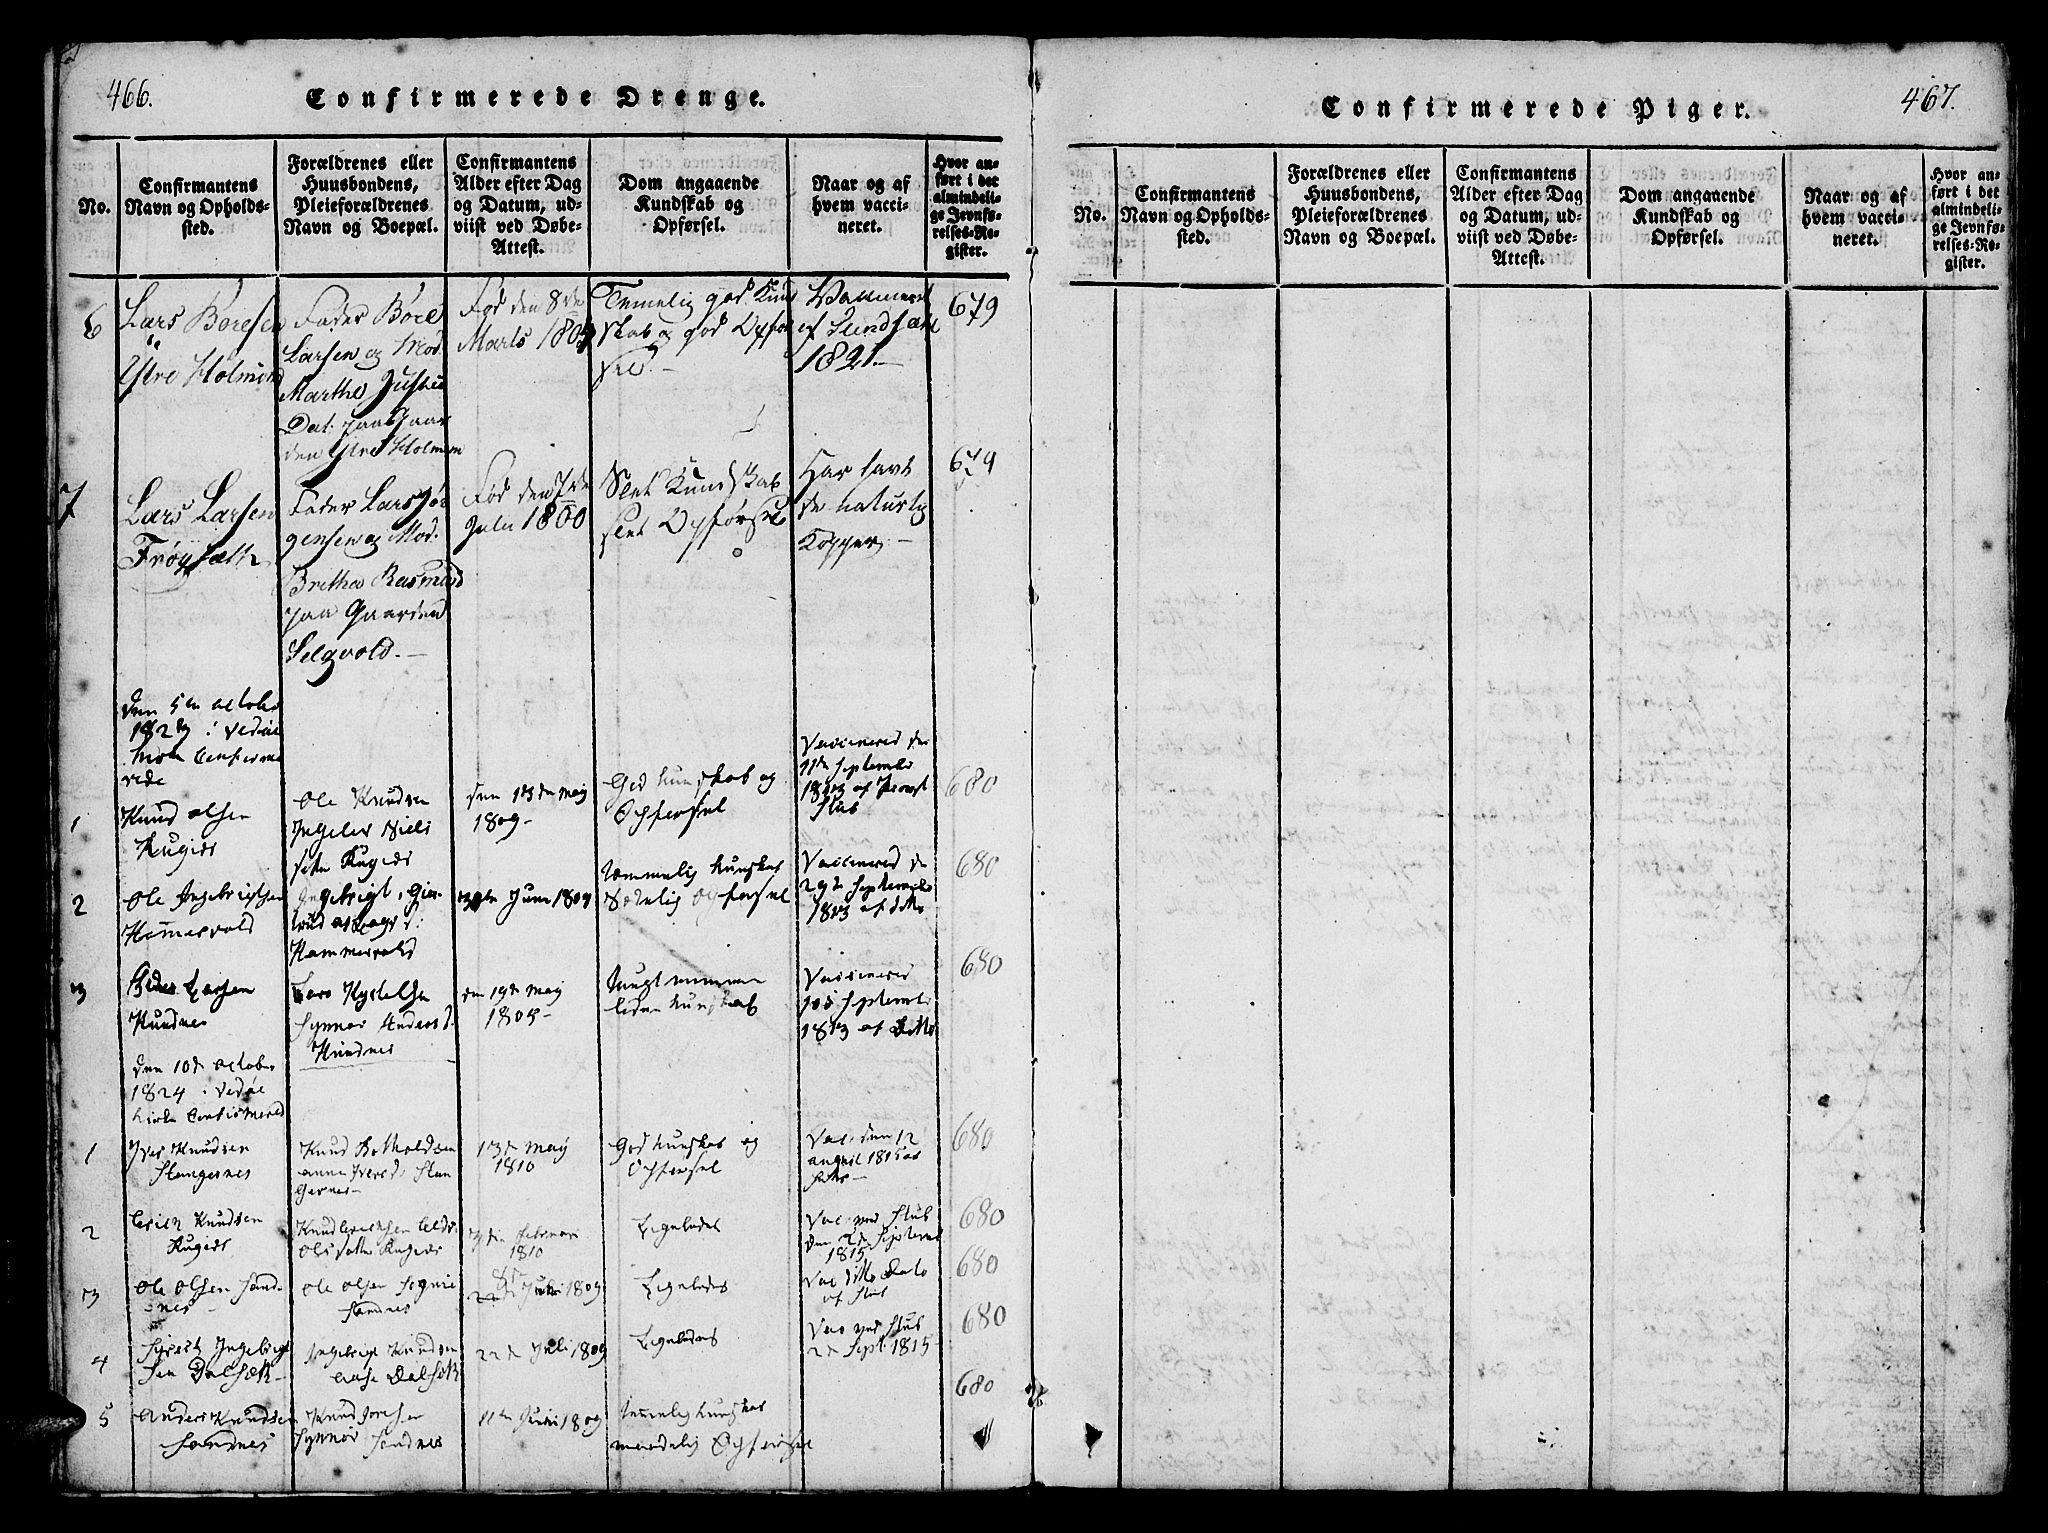 466.
Confirmerede Drenge.
No.
Confirmantens
Navn og Opholds-
sted.
Forældrenes eller
Huusbondens,
Pleieforældrenes
Navn og Boepæl.
Confirmantens
Alder efter Dag
og Datum, ud-
viist ved Døbe-
Attest.
Dom angaaende
Kundskab og
Opførsel.
Naar og af
hvem vacci-
neret.
Hvor an-
ført i det
almindeli-
ge Jevnfø-
relses-Re-
gister.
6
Lars Børesen
Ytre Holmem
Fader Børe
Larsen og Mod.
Marthe
Dat: paa Gaar
den Ytre Holmem
Fød den 8de
Marts 1805
Temelig god Kund
skab og god Opfør
sel.
1821.
679
7
Lars Larsen
Frøysæth
Fader Lars Jør
gensen og Mod.
Brithe Rasmusd
paa Gaarden
Selgvold.
Fød den 7de
Julu 1800
Slet Kundskab
slet Opførsel
Har havt
de naturlig
Kopper
679
Den 5te octobr
1823 i Vedøe
Confirme
rede
1
Knud olsen
Rugids
Ole Knudsen
Ingeler Niels
datter Rugids
den 13de maj
1809
God kunskab og
Opførsel
Vaccinered den
11te september
1813 af Provst
Stub
680
2
Ole Ingebrigtsen
Hammervold
Ingebrigt, Gier
trud aslags d:
Hammervold
30te Juni 1809
temmelig kunskab
Sædelig opførsel
Vaccinered den
29de September
1813 af ditto
680
3
Larsen
Hundnes
Lars Kydelsen
Synnør Anders d.
Hundnes
den 19de maj
1805
tungt nemme
liden kunskab
Vaccinered
10de september
1813 af Ditto
680
Den 10de octobr
1824 i Vedøe
kirke Confirmered
1
Iver Knudsen
Stangernes
Knud Botholdsen
anne Ivers d. Stan
gernes
13de maj
1810
God kunskab og
Opførsel
Vac. den 12
august 1815 as
ditto
680
2
Erich Knudsen
Rugids
Knud Erichsen
Ols datter Rugids
3die februari
1810
Ligeledes
Vac ved Stub
den 2de september
1815
680
3
Ole Olsen Sand
nes
Ole Olsen Sognie
Sandnes
Juli 1809
Ligeledes
Vac ditto Dato
af Stub
680
4
Siverth Ingebrigt
sen Dalsæth
Ingebrigt Knudsen
aase Dalsæth
22de Juli 1809
Ligeledes
Vac ved Stub
2de Sept 1815
680
5
Anders Knudsen
Sandnes
Knud Joensen
Synnør Sandnes
11te Juni 1809
temmelig kunskab
maadelig Opførsel
680
467.
Confirmerede Piger.
No.
Confirmantens
Navn og Opholds-
sted.
Forældrenes eller
Huusbondens,
Pleieforældrenes
Navn og Boepæl.
Confirmantens
Alder efter Dag
og Datum, ud-
viist ved Døbe-
Attest.
Dom angaaende
Kundskab og
Opførsel.
Naar og af
hvem vacci-
neret.
Hvor an-
ført i det
almindeli-
ge Jevnfø-
relses-Re-
gister.